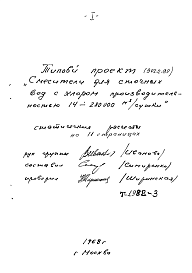 - I -
Типовой проект (902-2-90)
"Смесители для сточных
вод с хлором производитель-
ностью 14 ÷ 280000 м³/сутки"
статические расчеты
на 11 страницах
рук группы (Иванова)
составил
проверил (Ширинская)
т.1988-3
1968г
г Москва